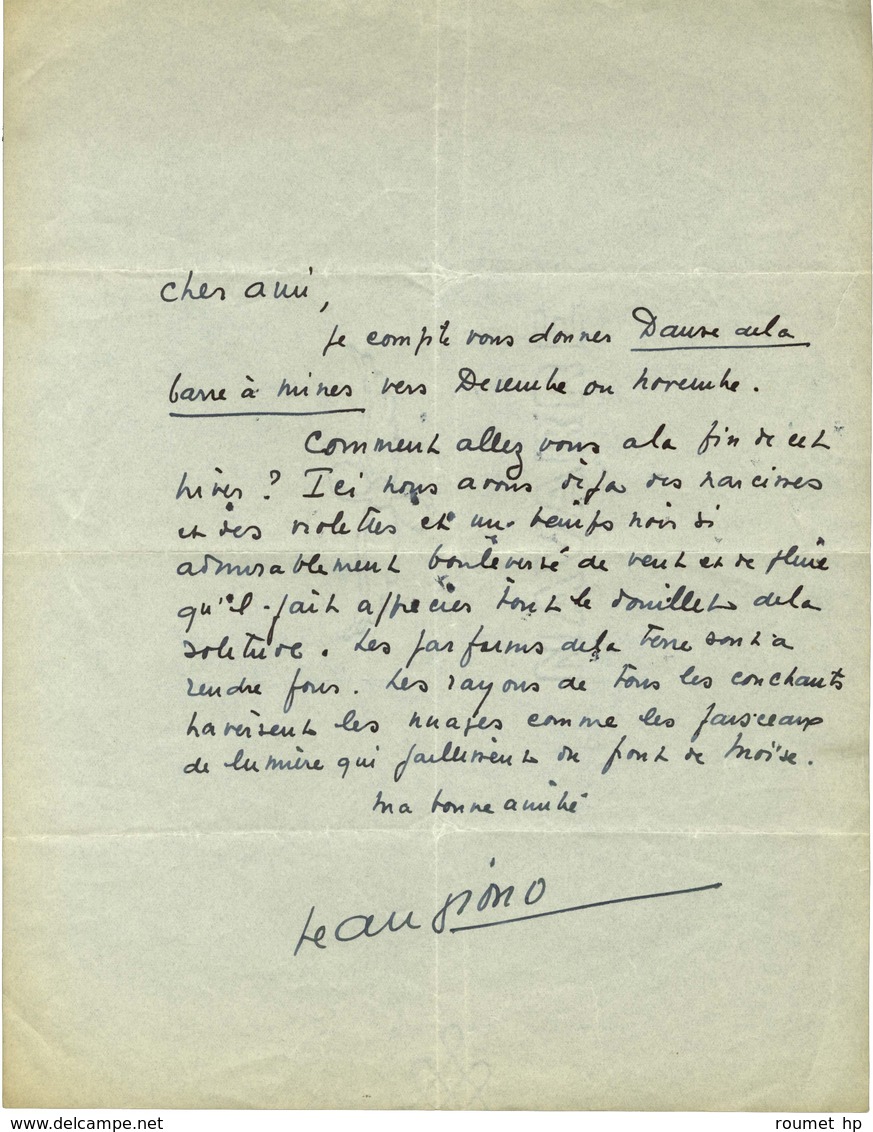 Cher ami,
je compte vous donner Danse de la
barre à mines vers Décembre ou novembre.
Comment allez vous a la fin de cet
hiver ? Ici nous avons déja des narcisses
et des violettes et un temps noir si
admirablement bouleversé de vent et de pluie
qu'il fait apprécier tout le douillet de la
solitude. Les parfums de la terre sont a
rendre fous. Les rayons de tous les couchants
traversent les nuages comme les faisceaux
de lumière qui jaillirent du front de Moïse.
Ma bonne amitié
Jean Giono
www.delcampe.net
roumet hp